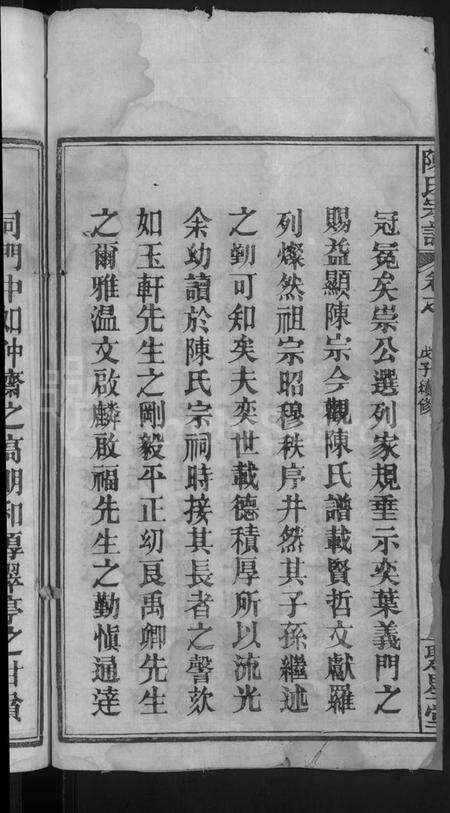 陳氏宗譜
卷之
戊子續修
聚星堂
冠冕矣崇公選列家規垂示奕葉義門之
賜益顯陳宗今觀陳氏譜載賢哲文獻羅
列燦然祖宗昭穆秩序井然其子孫繼述
之勤可知矣夫奕世載德積厚所以流光
余幼讀於陳氏宗祠時接其長者之謦欬
如玉軒先生之剛毅平正幼良禹卿先生
之爾雅温文啟麟啟福先生之勤慎通達
同門中如仲齋之高明和厚翠亭之甘賞